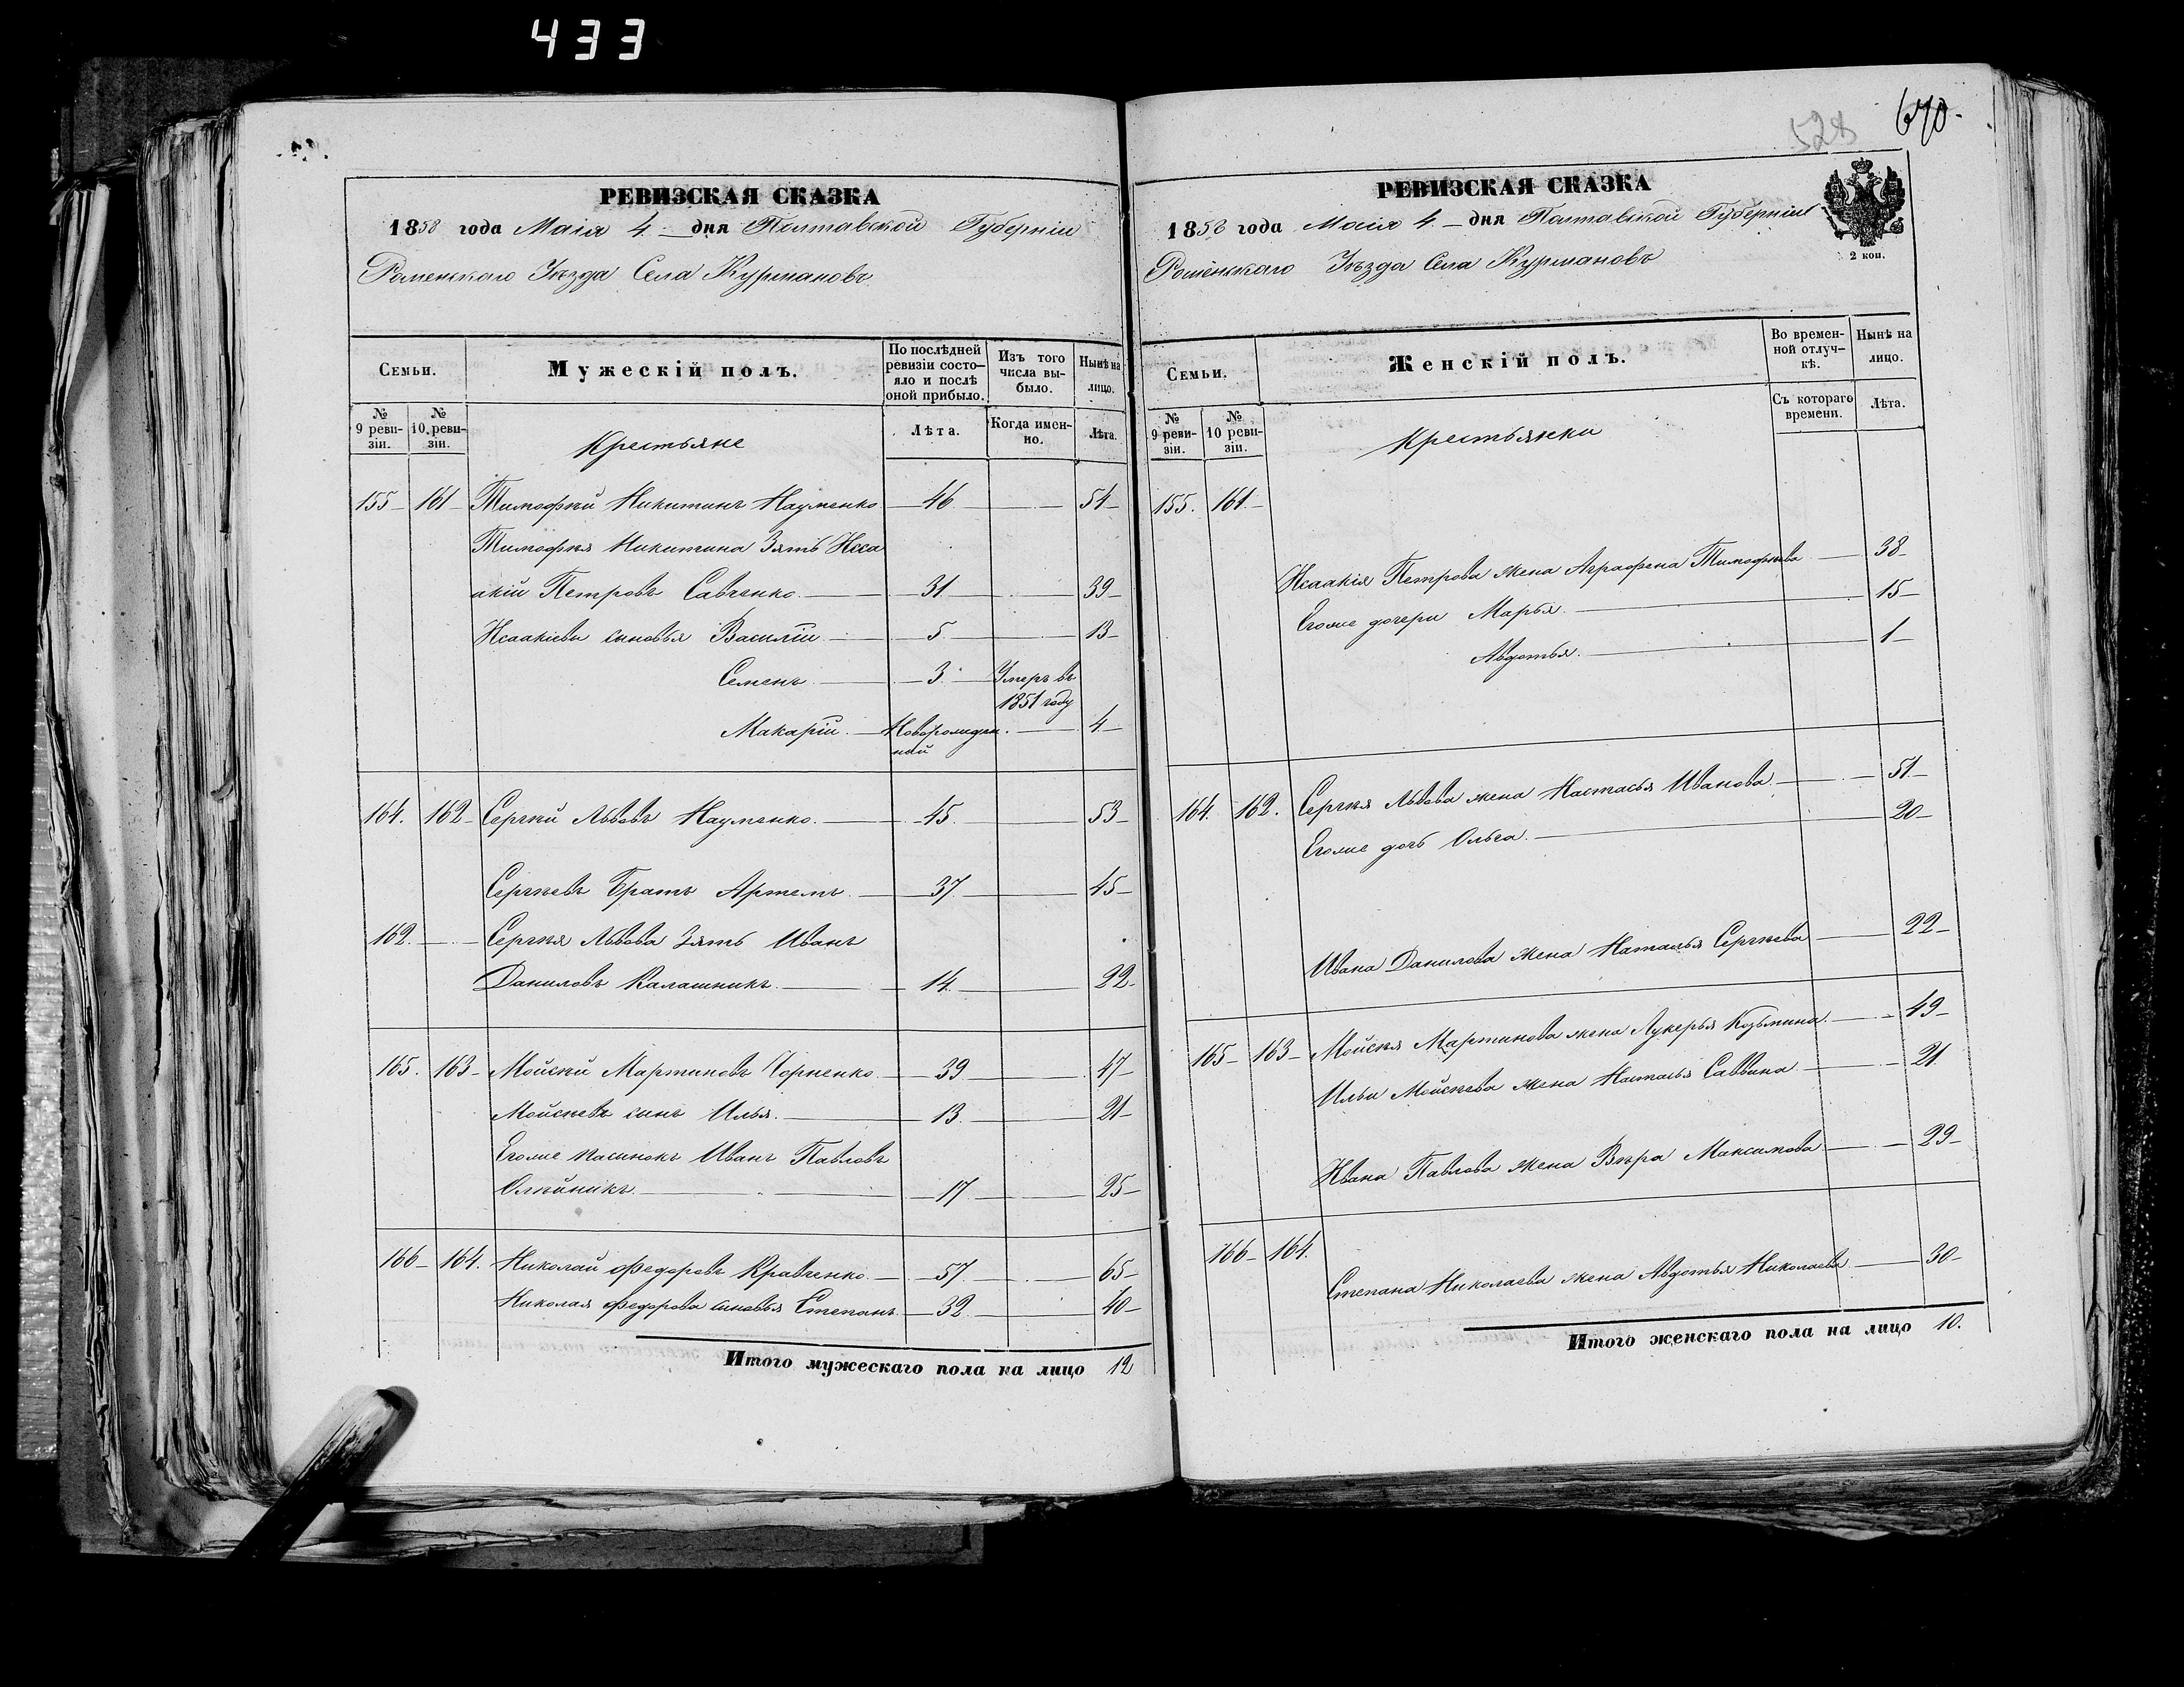 433
528
670.
РЕВИЗСКАЯ СКАЗКА
1858 года Маія 4 дня Полтавской Губерніи
Роменскаго Уѣзда Села Курмановъ
Семьи.
Мужескій полъ.
По послѣдней ревизіи состояло и послѣ оной прибыло.
Изъ того числа выбыло.
Нынѣ на лицо.
№ 9 ревизіи.
№ 10 ревизіи.
Крестьяне
Лѣта.
Когда именно.
Лѣта.
155 161 Тимофѣй Никитинъ Науменко 46 54
Тимофѣя Никитина Зять Иса
акій Петровъ Савченко 31 39
Исаакіевы сыновья Василій 5 13
Семенъ 3 Умеръ въ
1851 году
Макарій Новорожден 4
ный
164. 162 Сергѣй Львовъ Науменко 45 53
Сергѣевъ Братъ Артемъ 37 45
162. Сергѣя Львова Зять Иванъ
Даниловъ Калашникъ 14 22
165. 163 Мойсѣй Мартиновъ Чорненко 39 47
Мойсѣевъ сынъ Илья 13 21
Егоже пасинокъ Иванъ Павловъ
Олѣйникъ 17 25
166 164. Николай Федоровъ Кравченко 57 65
Николая Федорова сыновья Степанъ 32 40
Итого мужескаго пола на лицо 12
РЕВИЗСКАЯ СКАЗКА
1858 года Маія 4 дня Полтавской Губерніи
Роменскаго Уѣзда Села Курмановъ
2 коп.
Семьи.
Женскій полъ.
Во временной отлучкѣ.
Нынѣ на лицо.
№ 9 ревизіи.
№ 10 ревизіи.
Крестьянки
Съ котораго времени.
Лѣта.
155. 161
Исаакія Петрова жена Аграфена Тимофѣева 38
Егоже дочери Марья 15
Авдотья 1
164. 162. Сергѣя Львова жена Настасья Иванова 51
Егоже дочь Ольга 20
Ивана Данилова жена Наталья Сергѣева 22
165 163 Мойсѣя Мартинова жена Лукерья Козьмина 49
Ильи Мойсѣева жена Настасья Саввина 21
Ивана Павлова жена Вѣра Максимова 29
166 164.
Степана Николаева жена Авдотья Николаева 30
Итого женскаго пола на лицо 10.